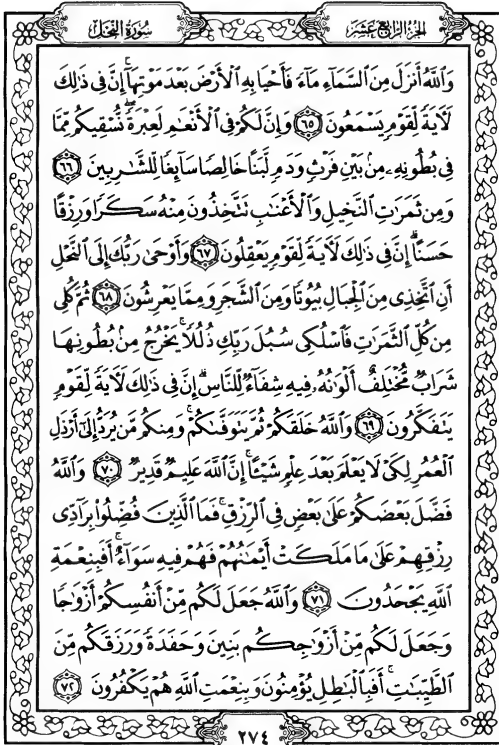 الجزء الرابع عشر
سورة النحل
وَاللَّهُ أَنزَلَ مِنَ السَّمَاءِ مَاءً فَأَحْيَا بِهِ الْأَرْضَ بَعْدَ مَوْتِهَا ۚ إِنَّ فِي ذَٰلِكَ
لَآيَةً لِّقَوْمٍ يَسْمَعُونَ ٦٥ وَإِنَّ لَكُمْ فِي الْأَنْعَامِ لَعِبْرَةً ۖ نُّسْقِيكُم مِّمَّا
فِي بُطُونِهِ مِن بَيْنِ فَرْثٍ وَدَمٍ لَّبَنًا خَالِصًا سَائِغًا لِّلشَّارِبِينَ ٦٦
وَمِن ثَمَرَاتِ النَّخِيلِ وَالْأَعْنَابِ تَتَّخِذُونَ مِنْهُ سَكَرًا وَرِزْقًا
حَسَنًا ۗ إِنَّ فِي ذَٰلِكَ لَآيَةً لِّقَوْمٍ يَعْقِلُونَ ٦٧ وَأَوْحَىٰ رَبُّكَ إِلَى النَّحْلِ
أَنِ اتَّخِذِي مِنَ الْجِبَالِ بُيُوتًا وَمِنَ الشَّجَرِ وَمِمَّا يَعْرِشُونَ ٦٨ ثُمَّ كُلِي
مِن كُلِّ الثَّمَرَاتِ فَاسْلُكِي سُبُلَ رَبِّكِ ذُلُلًا ۚ يَخْرُجُ مِن بُطُونِهَا
شَرَابٌ مُّخْتَلِفٌ أَلْوَانُهُ فِيهِ شِفَاءٌ لِّلنَّاسِ ۗ إِنَّ فِي ذَٰلِكَ لَآيَةً لِّقَوْمٍ
يَتَفَكَّرُونَ ٦٩ وَاللَّهُ خَلَقَكُمْ ثُمَّ يَتَوَفَّاكُمْ ۚ وَمِنكُم مَّن يُرَدُّ إِلَىٰ أَرْذَلِ
الْعُمُرِ لِكَيْ لَا يَعْلَمَ بَعْدَ عِلْمٍ شَيْئًا ۚ إِنَّ اللَّهَ عَلِيمٌ قَدِيرٌ ٧٠ وَاللَّهُ
فَضَّلَ بَعْضَكُمْ عَلَىٰ بَعْضٍ فِي الرِّزْقِ ۚ فَمَا الَّذِينَ فُضِّلُوا بِرَادِّي
رِزْقِهِمْ عَلَىٰ مَا مَلَكَتْ أَيْمَانُهُمْ فَهُمْ فِيهِ سَوَاءٌ ۚ أَفَبِنِعْمَةِ
اللَّهِ يَجْحَدُونَ ٧١ وَاللَّهُ جَعَلَ لَكُم مِّنْ أَنفُسِكُمْ أَزْوَاجًا
وَجَعَلَ لَكُم مِّنْ أَزْوَاجِكُم بَنِينَ وَحَفَدَةً وَرَزَقَكُم مِّنَ
الطَّيِّبَاتِ ۚ أَفَبِالْبَاطِلِ يُؤْمِنُونَ وَبِنِعْمَتِ اللَّهِ هُمْ يَكْفُرُونَ ٧٢
٢٧٤